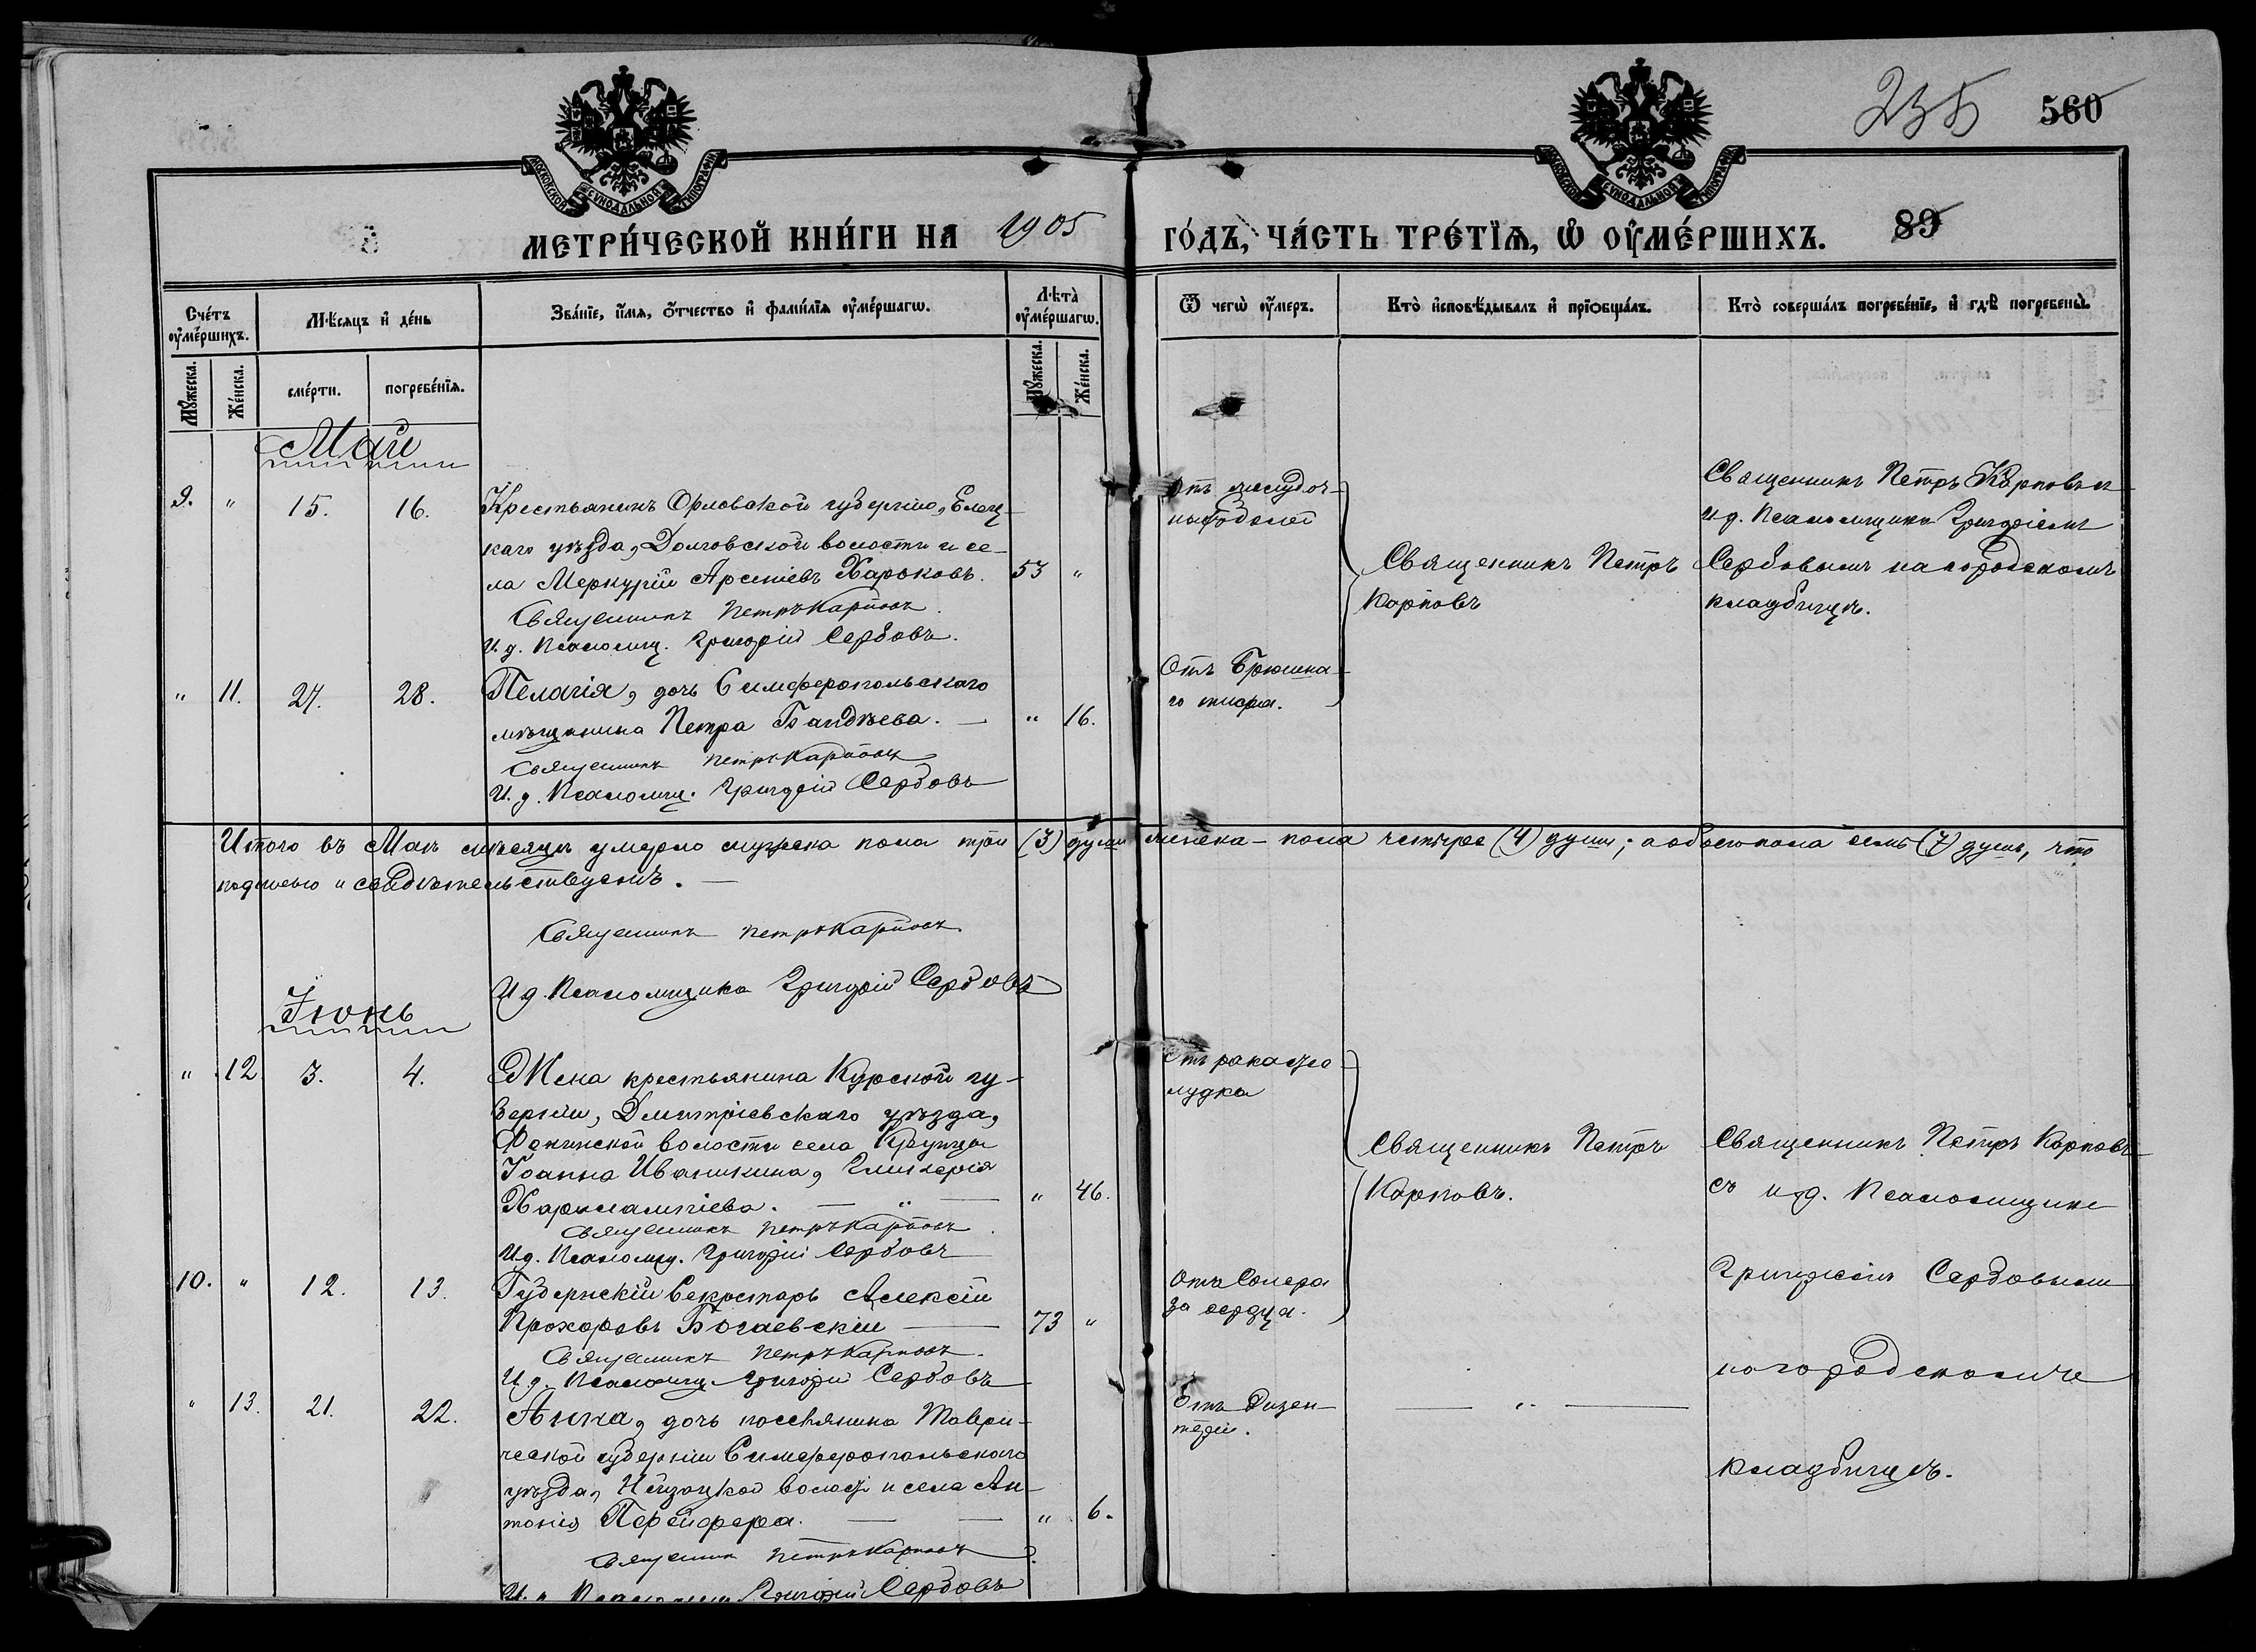 235 560
МОСКОВСКОЙ СѴНОДАЛЬНОЙ ТИПОГРАФІИ
МОСКОВСКОЙ СѴНОДАЛЬНОЙ ТИПОГРАФІИ
МЕТРИ́ЧЕСКОЙ КНИ́ГИ НА 1905 ГО́ДЪ, ЧА́СТЬ ТРЕ́ТЇѦ, Ѡ҆ ОУ҆МЕ́РШИХЪ. 89
Сче́тъ оу҆ме́ршихъ.
Мѣ́сяцъ и҆ де́нь
Зва́нїе, и҆́мя, ѻ҆́тчество и҆ фами́лїя оу҆ме́ршагѡ.
Лѣта̀ оу҆ме́ршагѡ.
Ѿ чегѡ̀ оу҆́меръ.
Кто̀ и҆сповѣ́дывалъ и҆ прїѻбща́лъ.
Кто̀ соверша́лъ погребе́нїе, и҆ гдѣ̀ погребены̀.
Мꙋ́жеска.
Же́нска.
сме́рти.
погребе́нїя.
Мꙋ́жеска.
Же́нска.
Май
9. " 15. 16. Крестьянинъ Орловской губерніи, Елец-
каго уѣзда, Долговской волости и се-
ла Меркурій Арсеніевъ Харьковъ. 53 "
Священникъ Петръ Карповъ.
И д. Псаломщ. Григорій Сербовъ.
Отъ желудоч-
Священникъ Петръ
Карповъ
Священникъ Петръ Карповъ съ
и д. Псаломщика Григоріемъ
Сербовымъ на городскомъ
кладбищѣ.
" 11. 27. 28. Пелагія, дочь Симферопольскаго
мѣщанина Петра Бандѣева. — " 16.
Священникъ Петръ Карповъ
И. д. Псаломщ. Григорій Сербовъ
Отъ Брюшна-
го тифа.
Итого въ Маѣ мѣсяцѣ умерло мужеска пола три (3) души женска - пола четыре (4) души; а обоего пола семь (7) душъ, что
подписью и свидѣтельствуемъ. —
Священникъ Петръ Карповъ
И д. Псаломщика Григорій Сербовъ
Іюнь
" 12 3. 4. Жена крестьянина Курской гу-
берніи, Дмитріевскаго уѣзда,
Фокинской волости села Крупца
Іоанна Иваникина, Гликерія
Харлампіева. — " — " 46.
Священникъ Петръ Карповъ.
И д. Псаломщ. Григорій Сербовъ
Отъ рака же-
лудка
Священникъ Петръ
Карповъ.
Священникъ Петръ Карповъ
съ и д. Псаломщика
Григоріемъ Сербовымъ
на городскомъ
кладбищѣ.
10. " 12. 13. Губернскій Секретарь Алексій
Прохоровъ Богаевскій — 73 "
Священникъ Петръ Карповъ.
И д. Псаломщ Григорій Сербовъ
за сердца.
" 13. 21. 22. Анна, дочь поселянина Таври-
ческой губерніи Симферопольскаго
уѣзда, Нейзацкой волости и села Ан-
тонія Пфейфера. — — " 6.
Священникъ Петръ Карповъ
И. д. Псаломщ Григорій Сербовъ
Отъ Дизен-
теріи.
— " —